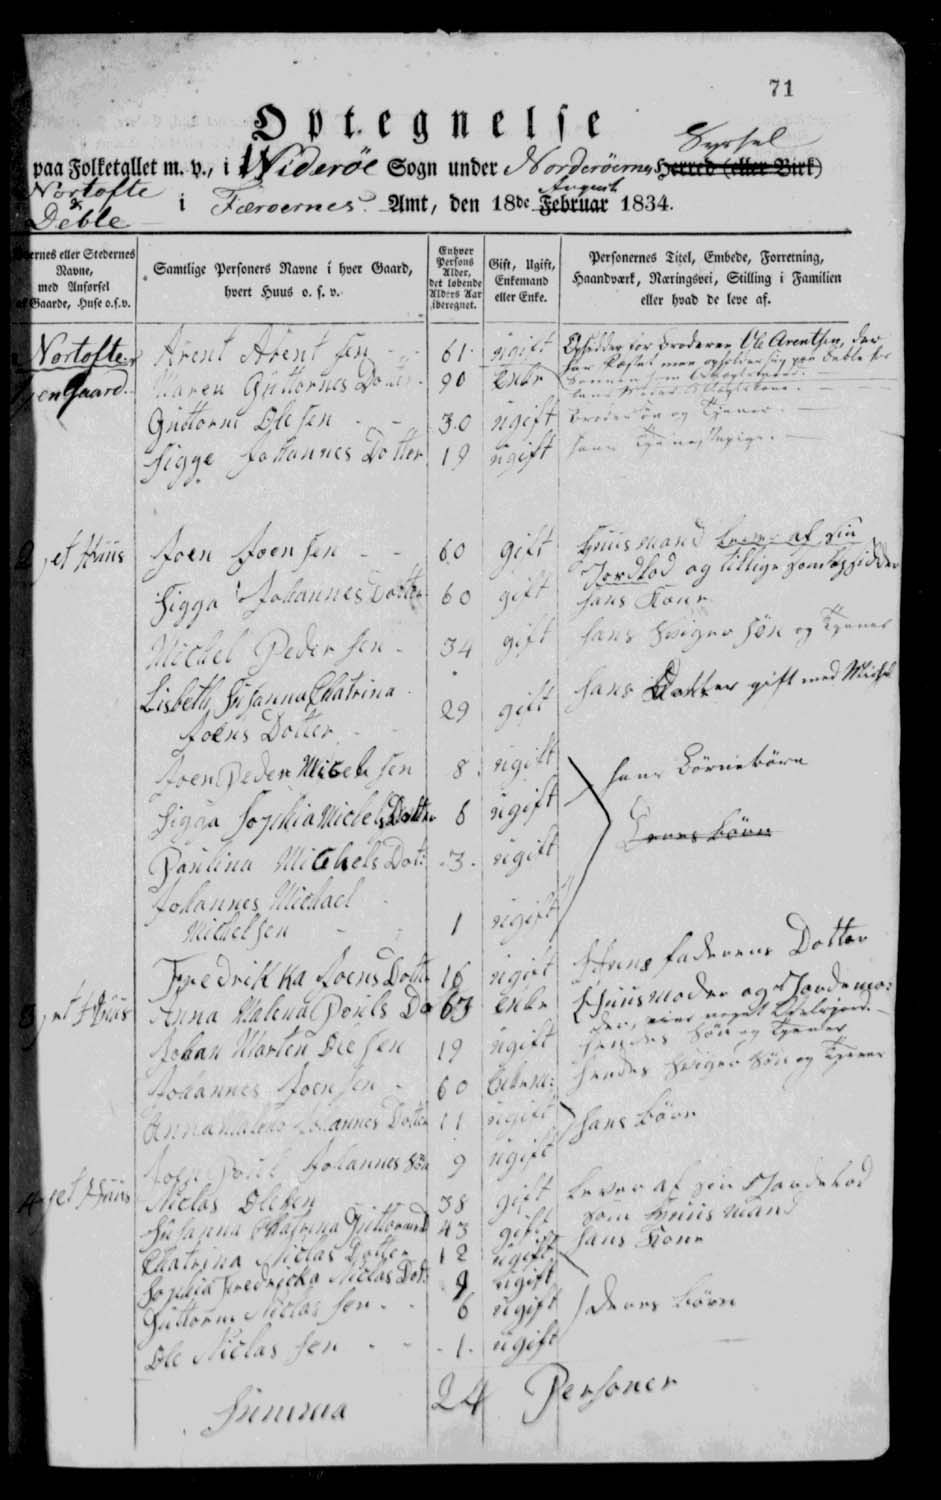 71
Optegnelse
Syssel
paa Folketallet m. v., i Wideröe Sogn under Norderöernes Herred (eller Birk)
Nortofte
&
Deble
August
i Færoernes Amt, den 18de Februar 1834.
Gaardernes eller Stedernes Navne, med Anførsel af Gaarde, Huse o.s.v.
Samtlige Personers Navne i hver Gaard, hvert Huus o. s. v.
Enhver Persons Alder, det løbende Alders Aar iberegnet.
Gift, Ugift, Enkemand eller Enke.
Personernes Titel, Embede, Forretning, Haandværk, Næringsvei, Stilling i Familien eller hvad de leve af.
Nortofte Arent Arent sen 61 ugift Opsidder for Broderen Ole Arentsen, der
har Fæstet men opholder sig paa Deble
een Gaard Maren Guttornes Dotter 90 Enke
Guttorm Ole sen 30 ugift Broder Søn og Tjener
Sigge Johannes Dotter 19 ugift hans Tjenestepige
2 et Huus Joen Joen sen 60 gift Huusmand lever af sin
Jordlod og tillige som Opsidder
Sigga Johannes Dotter 60 gift hans Kone
Michel Peder sen 34 gift hans Sviger Søn og Tjener
Lisbeth Susanna Chatrina
Joens Dotter 29 gift hans Datter gift med Michel
Joen Peder Michel sen 8 ugift hans Börnebörn
Sigga Sophia Michels Dotter 6 ugift
Deres börn
Paulina Michels Dot: 3 ugift
Johannes Michael
Michel sen 1 ugift
Fredrikka Joens Dotter 16 ugift Huus faderens Dotter
3 et Huus Anna Malena Pouls Do 63 Enke Huusmoder og Jordemo:
der, eier noget Odelsjord
Johan Morten Ole sen 19 ugift hendes Søn og Tjener
Johannes Joen sen 60 Enkem: hendes Sviger Søn og Tjener
Anna Malena Johannes Dotter 11 ugift hans börn
Joen Poul Johannes Sön 9 ugift
4 et Huus Niclas Olesen 38 gift Lever af sin Jordelod
som Huusmand
Susanna Chatrina Guttormsd 43 gift hans Kone
Chatrina Niclas Dotter 12 ugift
Sophia Fredricka Niclas Dot: 9 ugift
Guttorm Niclas sen 6 ugift deres börn
Ole Niclas sen 1 ugift
Summa 24 Personer